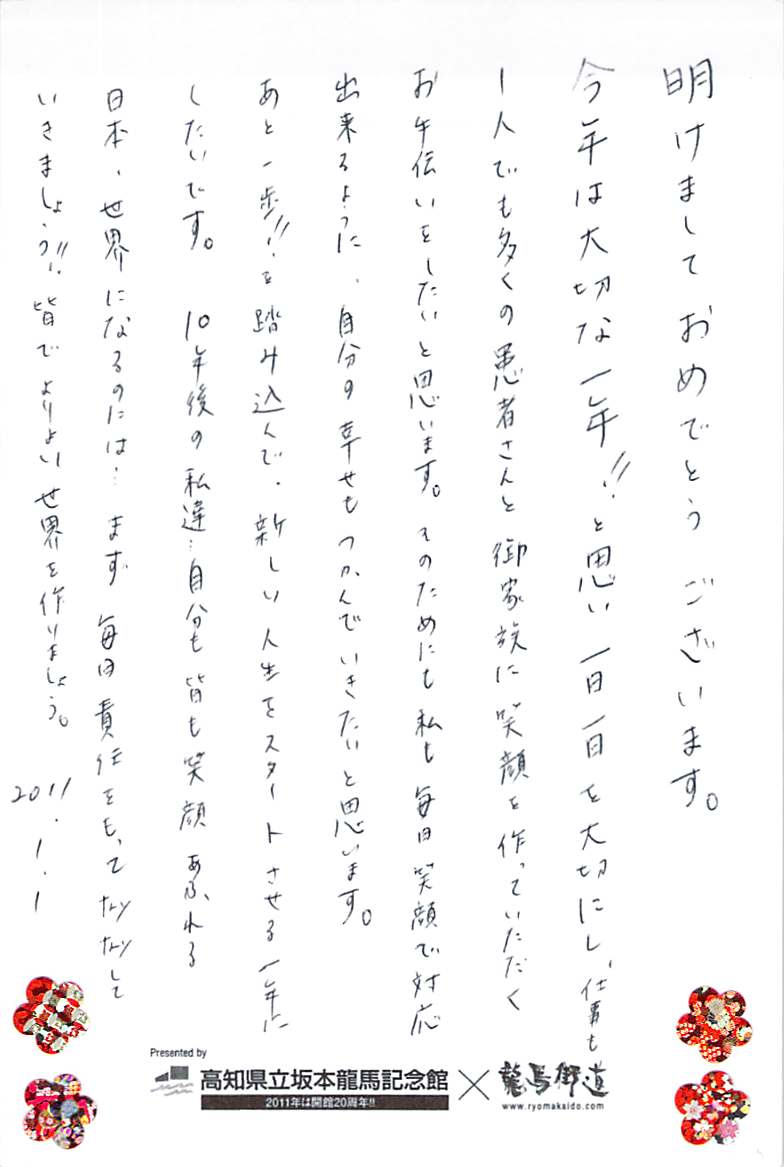 明けましておめでとうございます。
今年は大切な一年!!と思い一日一日を大切にし、仕事も
1人でも多くの患者さんと御家族に笑顔を作っていただく
お手伝いをしたいと思います。そのためにも私も毎日笑顔で対応
出来るように、自分の幸せもつかんでいきたいと思います。
あと一歩!!を踏み込んで、新しい人生をスタートさせる一年に
したいです。10年後の私達…自分も皆も笑顔あふれる
日本、世界になるのには…まず毎日責任をもって して
いきましょう!!皆でよりよい世界を作りましょう。
2011.1.1
Presented by
高知県立坂本龍馬記念館×龍馬街道
2011年は開館20周年!!
www.ryomakaido.com